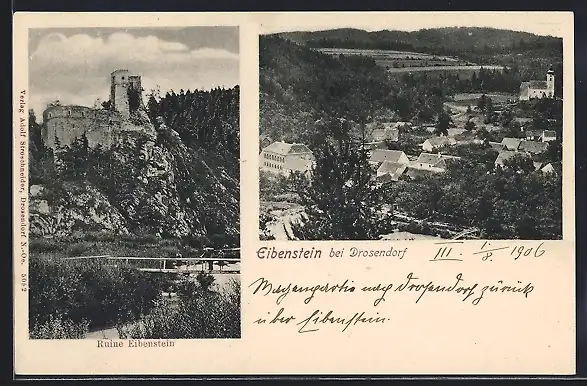 Verlag Adolf Stroschneider, Drosendorf N.-Oe. 5052
Ruine Eibenstein
Eibenstein bei Drosendorf
III. 1/8 1906
Wagenpartie nach Drosendorf zurück
über Eibenstein.